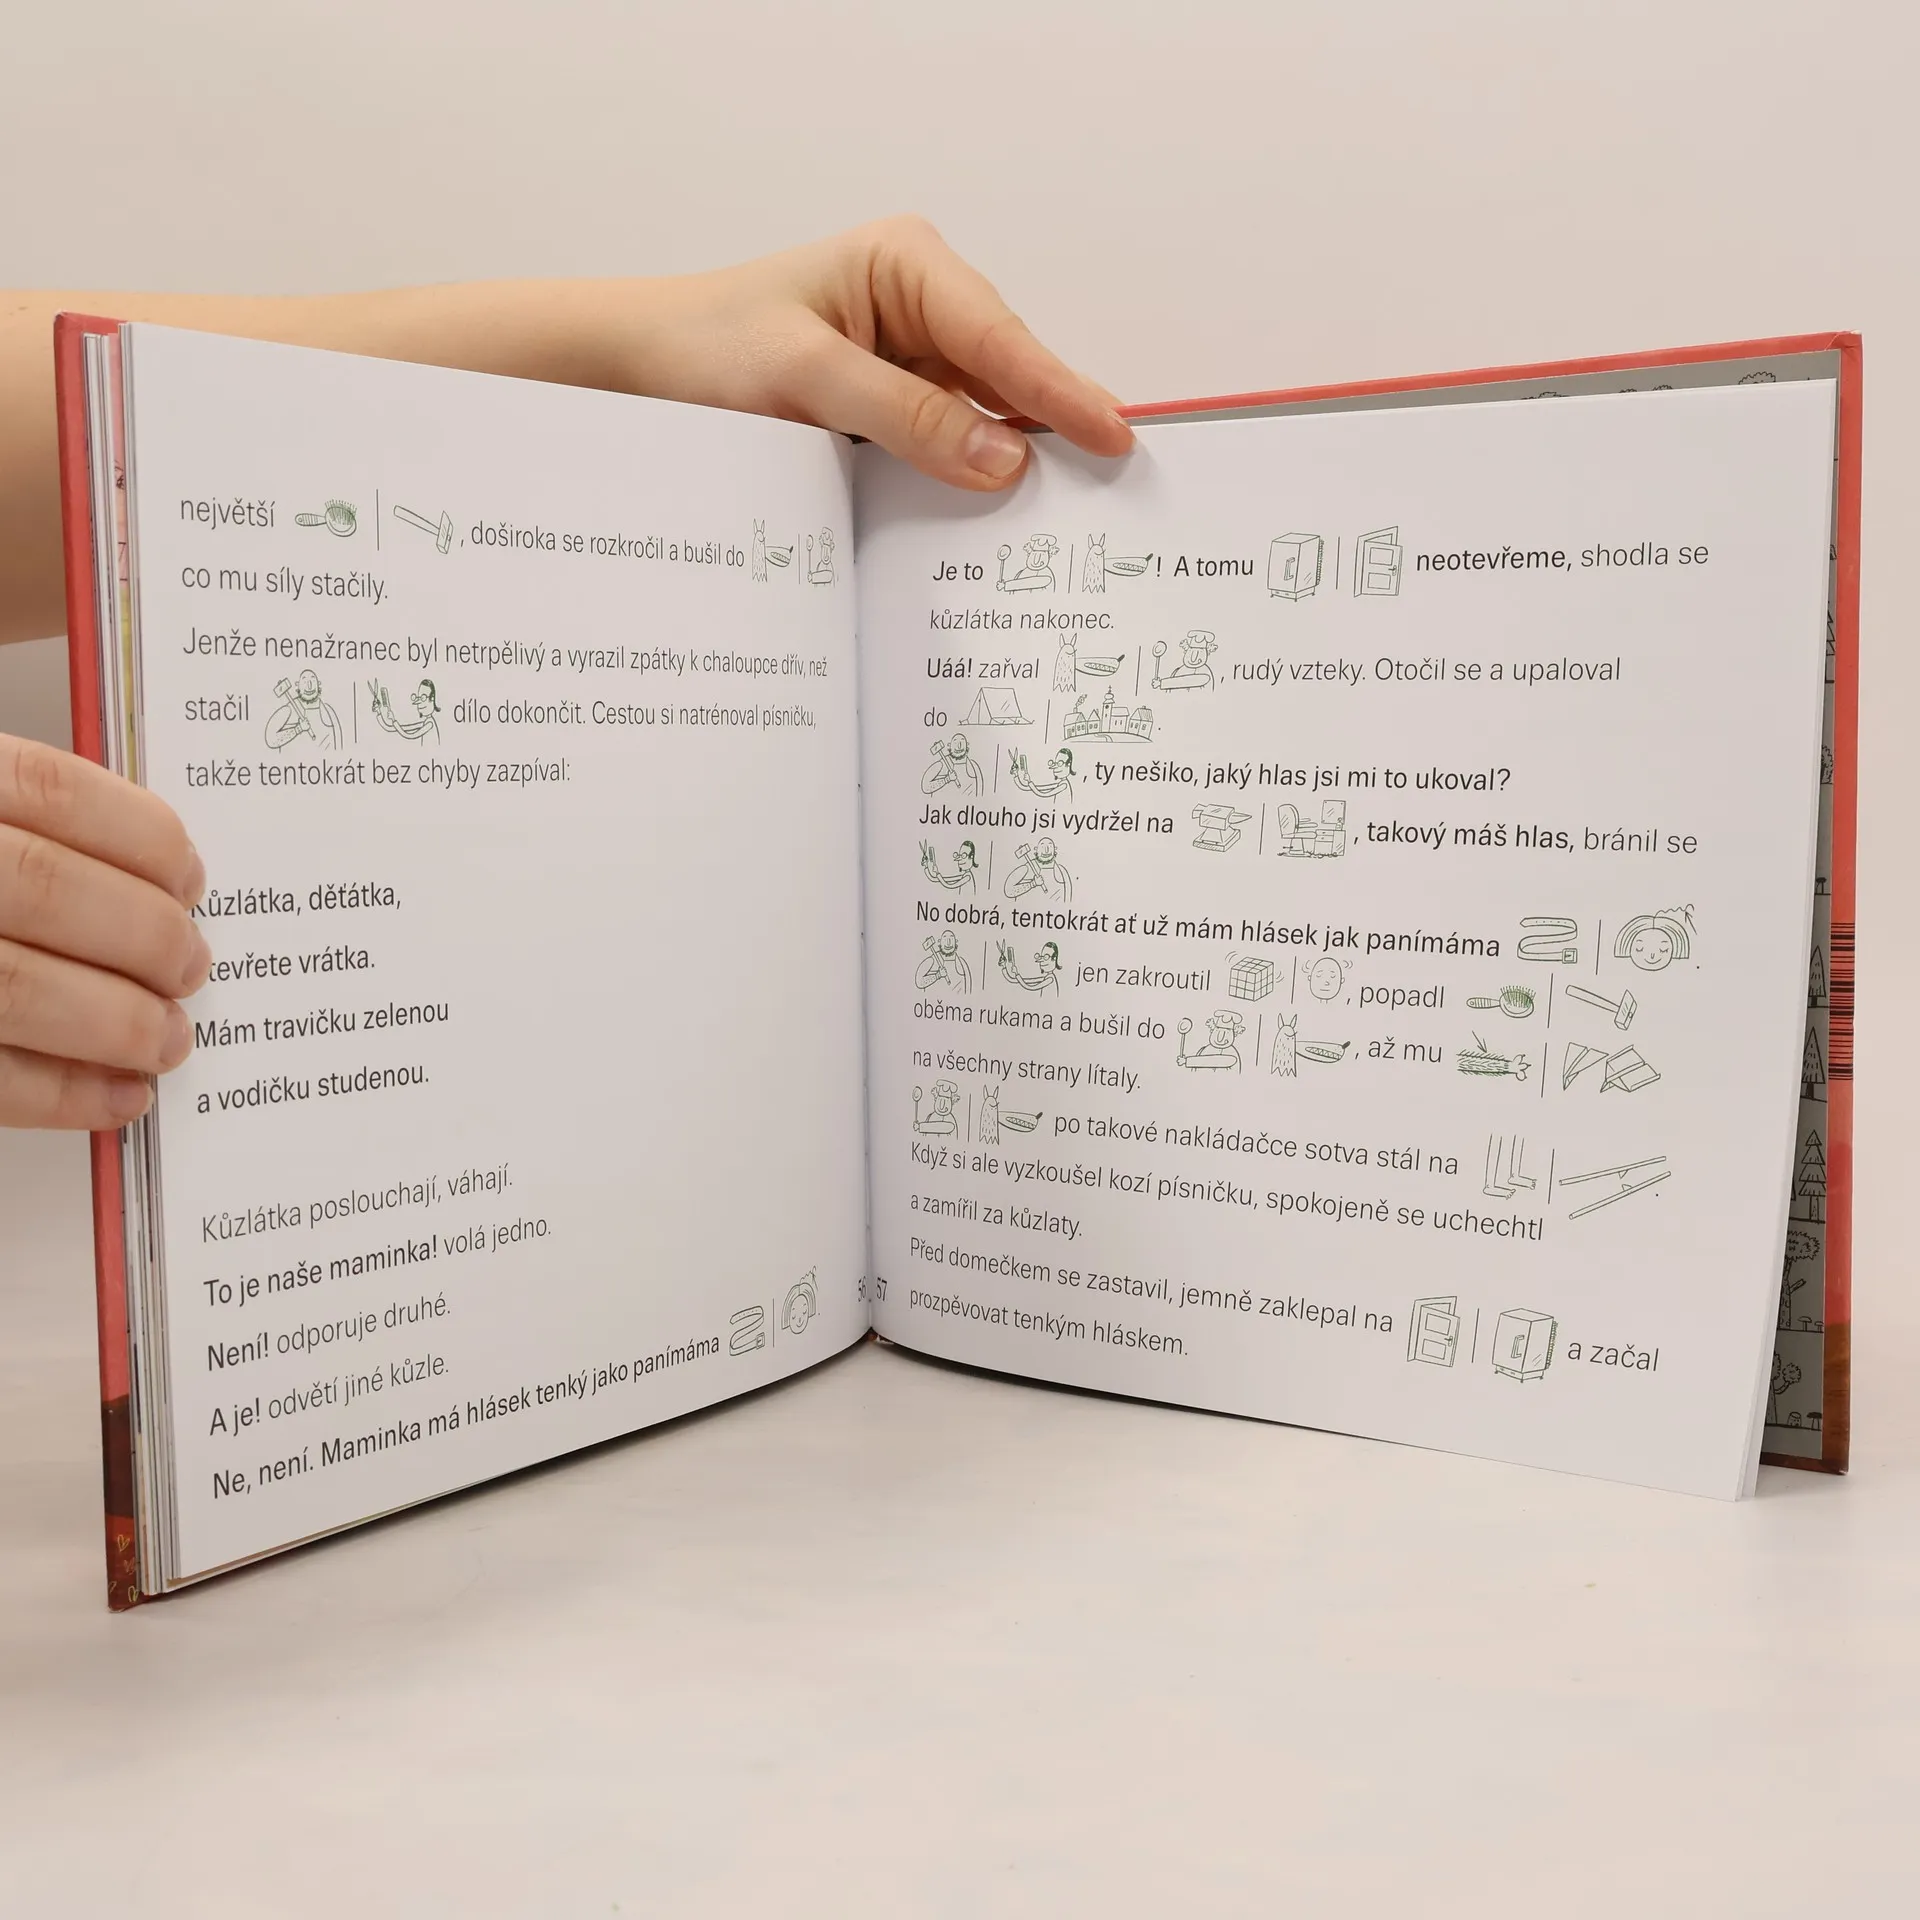 největší , doširoka se rozkročil a bušil do
co mu síly stačily.
Jenže nenažranec byl netrpělivý a vyrazil zpátky k chaloupce dřív, než
stačil dílo dokončit. Cestou si natrénoval písničku,
takže tentokrát bez chyby zazpíval:
Kůzlátka, děťátka,
tevřete vrátka.
Mám travičku zelenou
a vodičku studenou.
Kůzlátka poslouchají, váhají.
To je naše maminka! volá jedno.
Není! odporuje druhé.
A je! odvětí jiné kůzle.
Ne, není. Maminka má hlásek tenký jako panímáma .
56
57
Je to ! A tomu neotevřeme, shodla se
kůzlátka nakonec.
Uáá! zařval , rudý vzteky. Otočil se a upaloval
do .
, ty nešiko, jaký hlas jsi mi to ukoval?
Jak dlouho jsi vydržel na , takový máš hlas, bránil se
.
No dobrá, tentokrát ať už mám hlásek jak panímáma .
jen zakroutil , popadl
oběma rukama a bušil do , až mu
na všechny strany lítaly.
po takové nakládačce sotva stál na .
Když si ale vyzkoušel kozí písničku, spokojeně se uchechtl
a zamířil za kůzlaty.
Před domečkem se zastavil, jemně zaklepal na a začal
prozpěvovat tenkým hláskem.